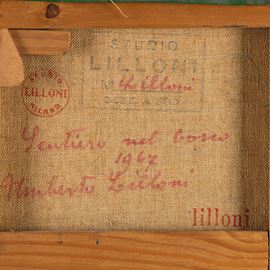 STUDIO
LILLONI
Lilloni
MILANO
STUDIO
LILLONI
MILANO
Sentiero nel bosco
1967
Umberto Lilloni
lilloni